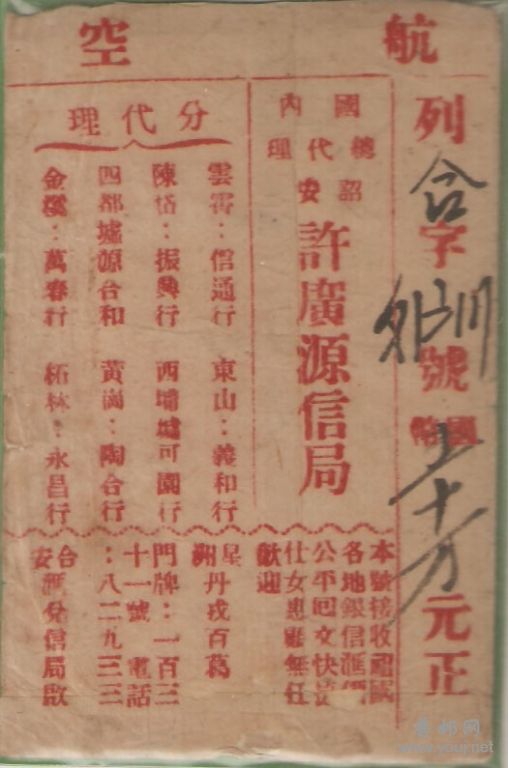 航空
列合字號國幣十万元正
國內
總代理
詔安
許廣源信局
分代理
雲霄：信通行 東山：義和行
陳岱：振興行 西埔墟可園行
四都墟源合和 黃崗：陶合行
金：萬春行 柘林：永昌行
本號接收祖國
各地銀信滙價
公平回文快捷
仕女惠顧無任
歡迎
星洲丹戎百葛
門牌：一百三
十一號 電話
：八二九三三
合安滙兌信局啟
集邮网
www.youj.net